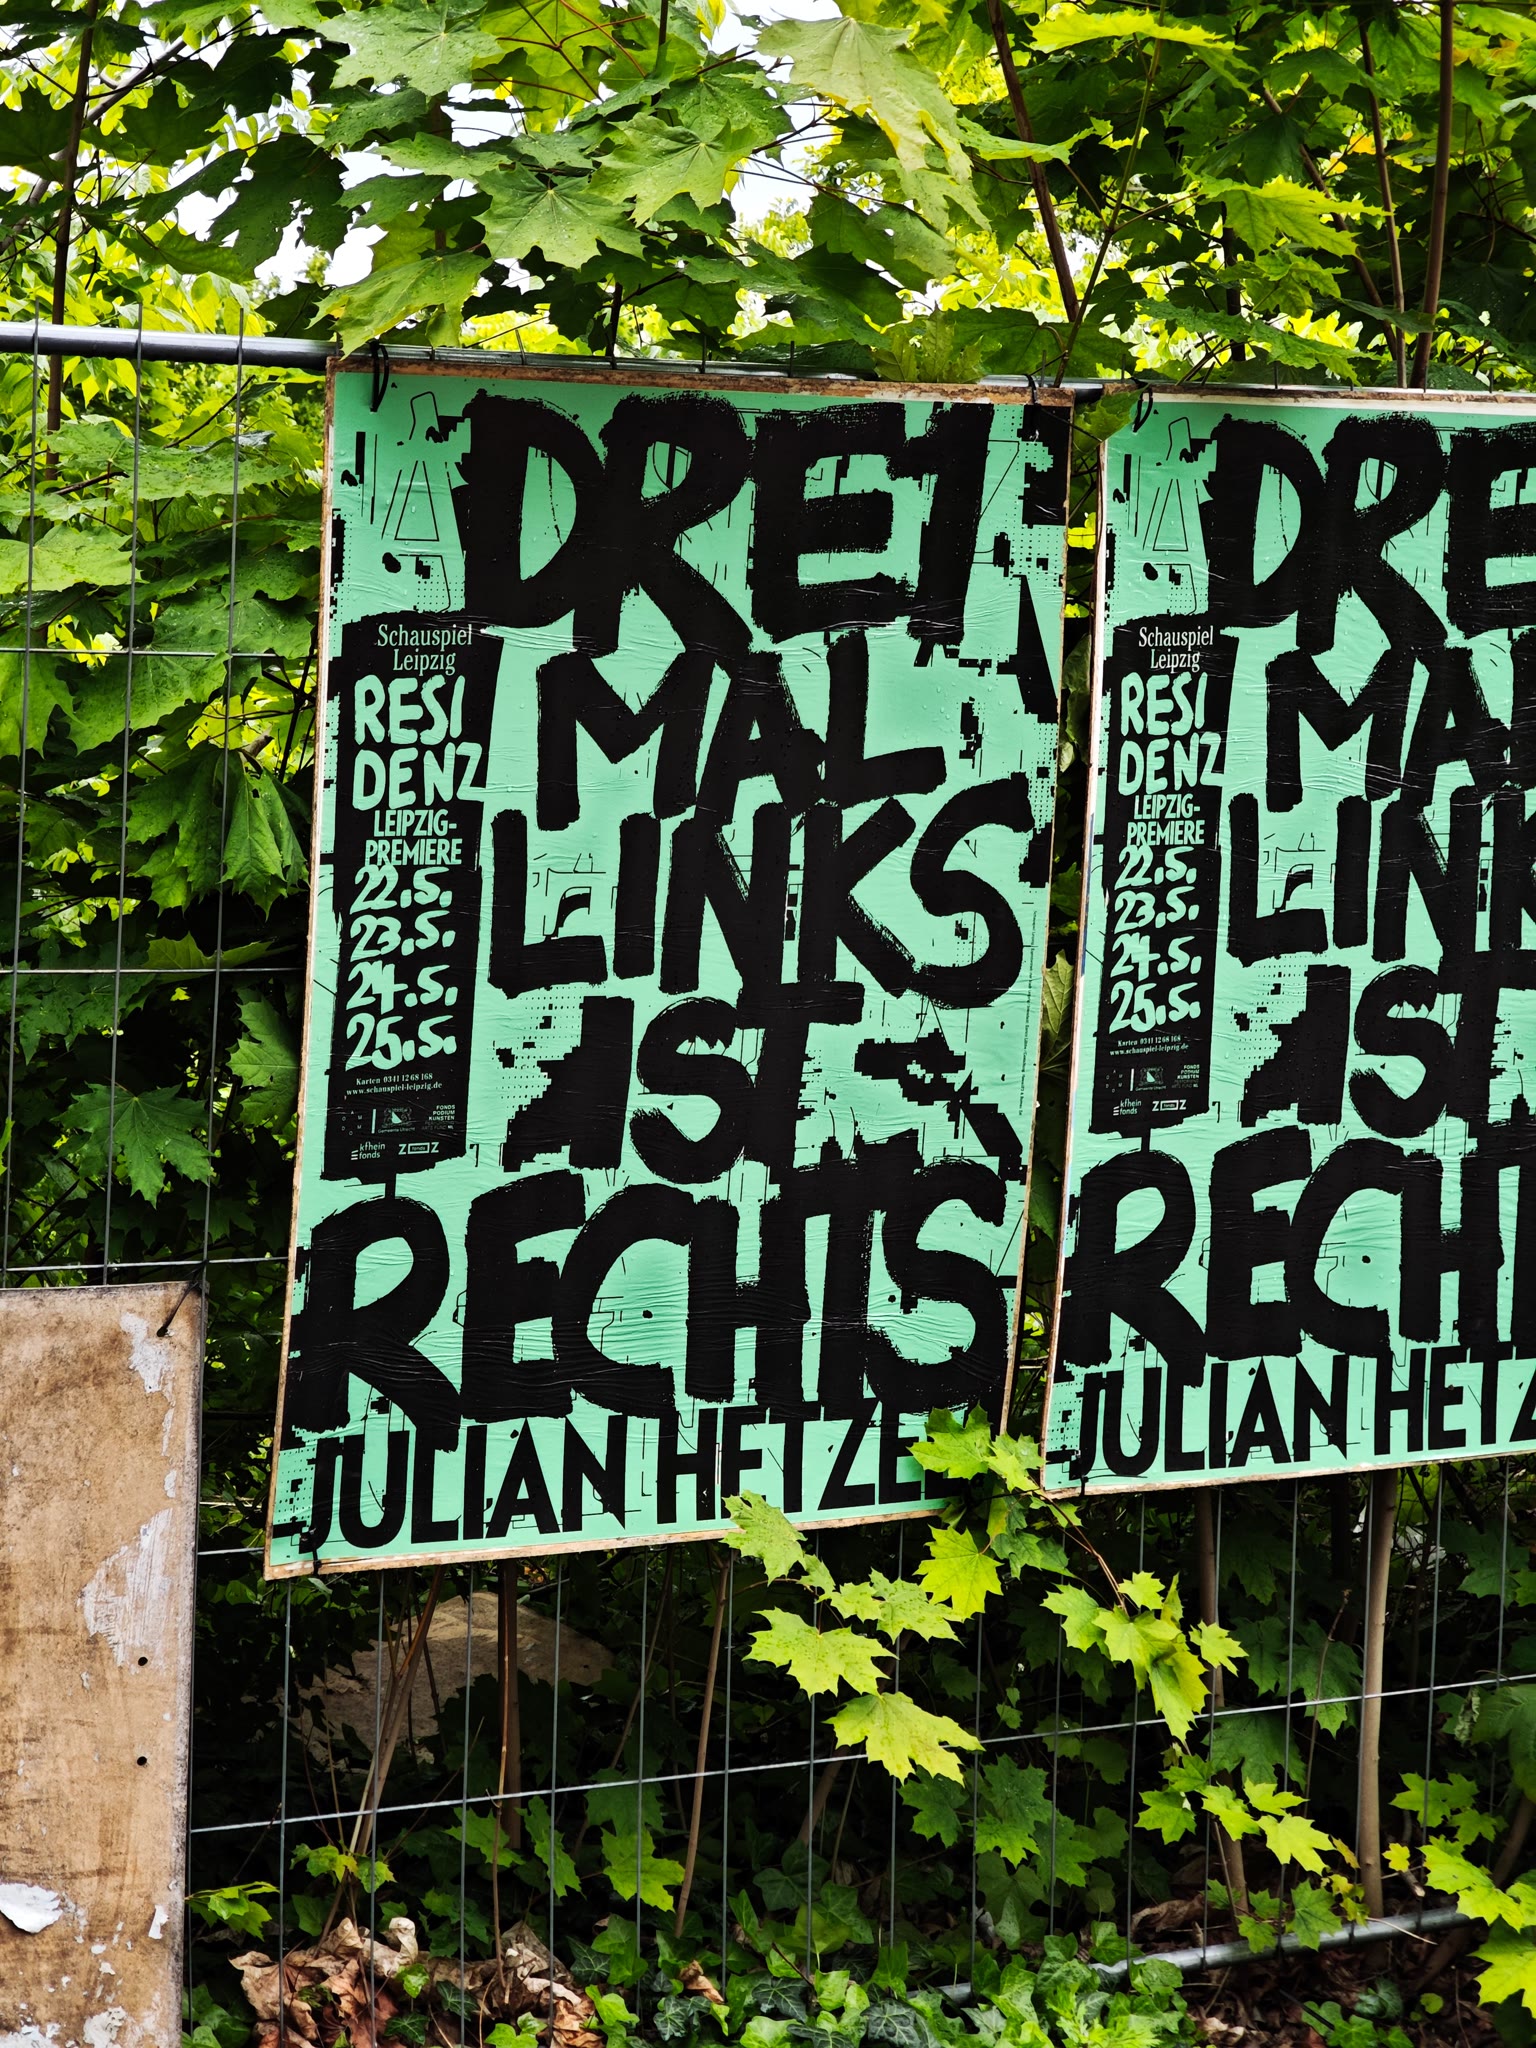 DREI
MAL
LINKS
IST
RECHTS
JULIAN HETZEL
Schauspiel
Leipzig
RESI
DENZ
LEIPZIG-
PREMIERE
22.5.
23.5.
24.5.
25.5.
Karten 0341 12 68 168
www.schauspiel-leipzig.de
FONDS
PODIUM
KUNSTEN
kfhein
fonds
Z fonds Z
DRE
MAL
LINK
IST
RECHT
JULIAN HETZ
Schauspiel
Leipzig
RESI
DENZ
LEIPZIG-
PREMIERE
22.5.
23.5.
24.5.
25.5.
Karten 0341 12 68 168
www.schauspiel-leipzig.de
FONDS
PODIUM
KUNSTEN
kfhein
fonds
Z fonds Z